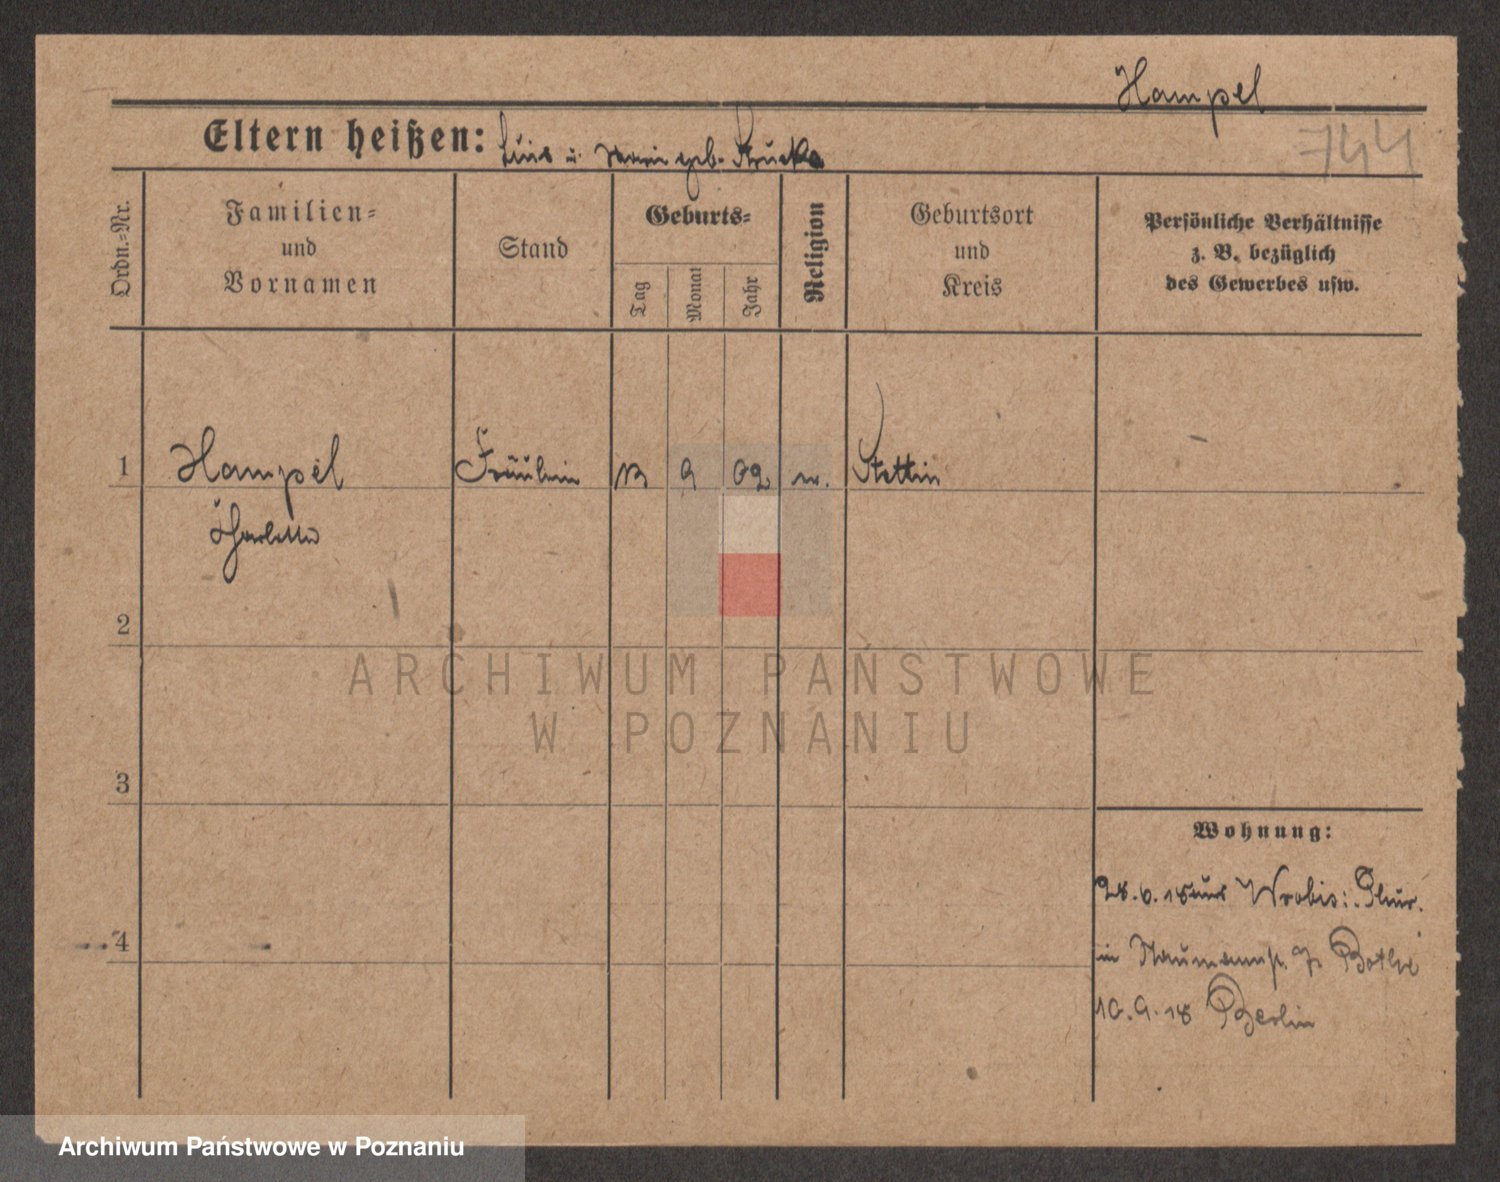 Hampel
744
Eltern heißen: Luis u. Marie geb. Krucka
Ordn.=Nr.
Familien=
und
Vornamen
Stand
Geburts=
Tag
Monat
Jahr
Religion
Geburtsort
und
Kreis
Persönliche Verhältnisse
z. B. bezüglich
des Gewerbes usw.
1 Hampel Fräulein 13 9 02 Stettin
Charlotte
2
ARCHIWUM PAŃSTWOWE
W POZNANIU
3
Wohnung:
28.6.18 aus
4
in Naumannstr. Bothe
10.9.18 Berlin
Archiwum Państwowe w Poznaniu